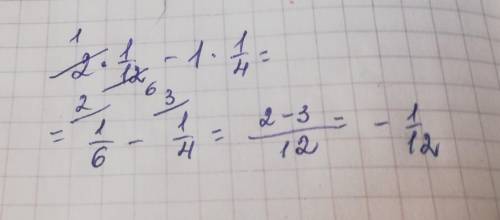 1
2 · 1/12 6 − 1 · 1/4 =
2 3
= 1/6 − 1/4 = 2−3/12 = − 1/12